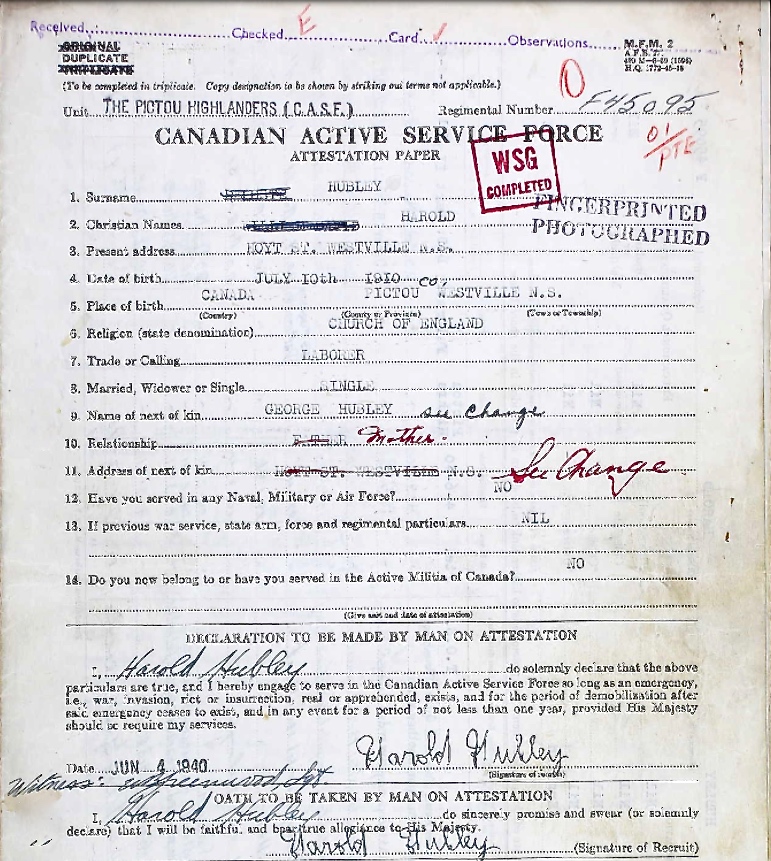 Received Checked E Card ✓ Observations
ORIGINAL
DUPLICATE
TRIPLICATE
M.F.M. 2
(To be completed in triplicate. Copy designation to be shown by striking out terms not applicable.)
Unit THE PICTOU HIGHLANDERS (C.A.S.F.) Regimental Number F45095
CANADIAN ACTIVE SERVICE FORCE
01/PTE
ATTESTATION PAPER
WSG
COMPLETED
1. Surname HUBLEY
FINGERPRINTED
2. Christian Names HAROLD
PHOTOGRAPHED
3. Present address HOYT ST. WESTVILLE N.S.
4. Date of birth JULY 10th 1910
5. Place of birth CANADA PICTOU CO, WESTVILLE N.S.
(Country) (County or Province) (Town or Township)
6. Religion (state denomination) CHURCH OF ENGLAND
7. Trade or Calling LABORER
8. Married, Widower or Single SINGLE
9. Name of next of kin GEORGE HUBLEY see change
10. Relationship Mother.
11. Address of next of kin HOYT ST. WESTVILLE N.S. See Change
12. Have you served in any Naval, Military or Air Force? NO
13. If previous war service, state arm, force and regimental particulars NIL
14. Do you now belong to or have you served in the Active Militia of Canada? NO
(Give unit and date of attestation)
DECLARATION TO BE MADE BY MAN ON ATTESTATION
I, Harold Hubley do solemnly declare that the above
particulars are true, and I hereby engage to serve in the Canadian Active Service Force so long as an emergency,
i.e., war, invasion, riot or insurrection, real or apprehended, exists, and for the period of demobilization after
said emergency ceases to exist, and in any event for a period of not less than one year, provided His Majesty
should so require my services.
Harold Hubley
Date JUN 4 1940
(Signature of Recruit)
Witness: Greenwood, Sgt
OATH TO BE TAKEN BY MAN ON ATTESTATION
I, Harold Hubley do sincerely promise and swear (or solemnly
declare) that I will be faithful and bear true allegiance to His Majesty.
Harold Hubley (Signature of Recruit)